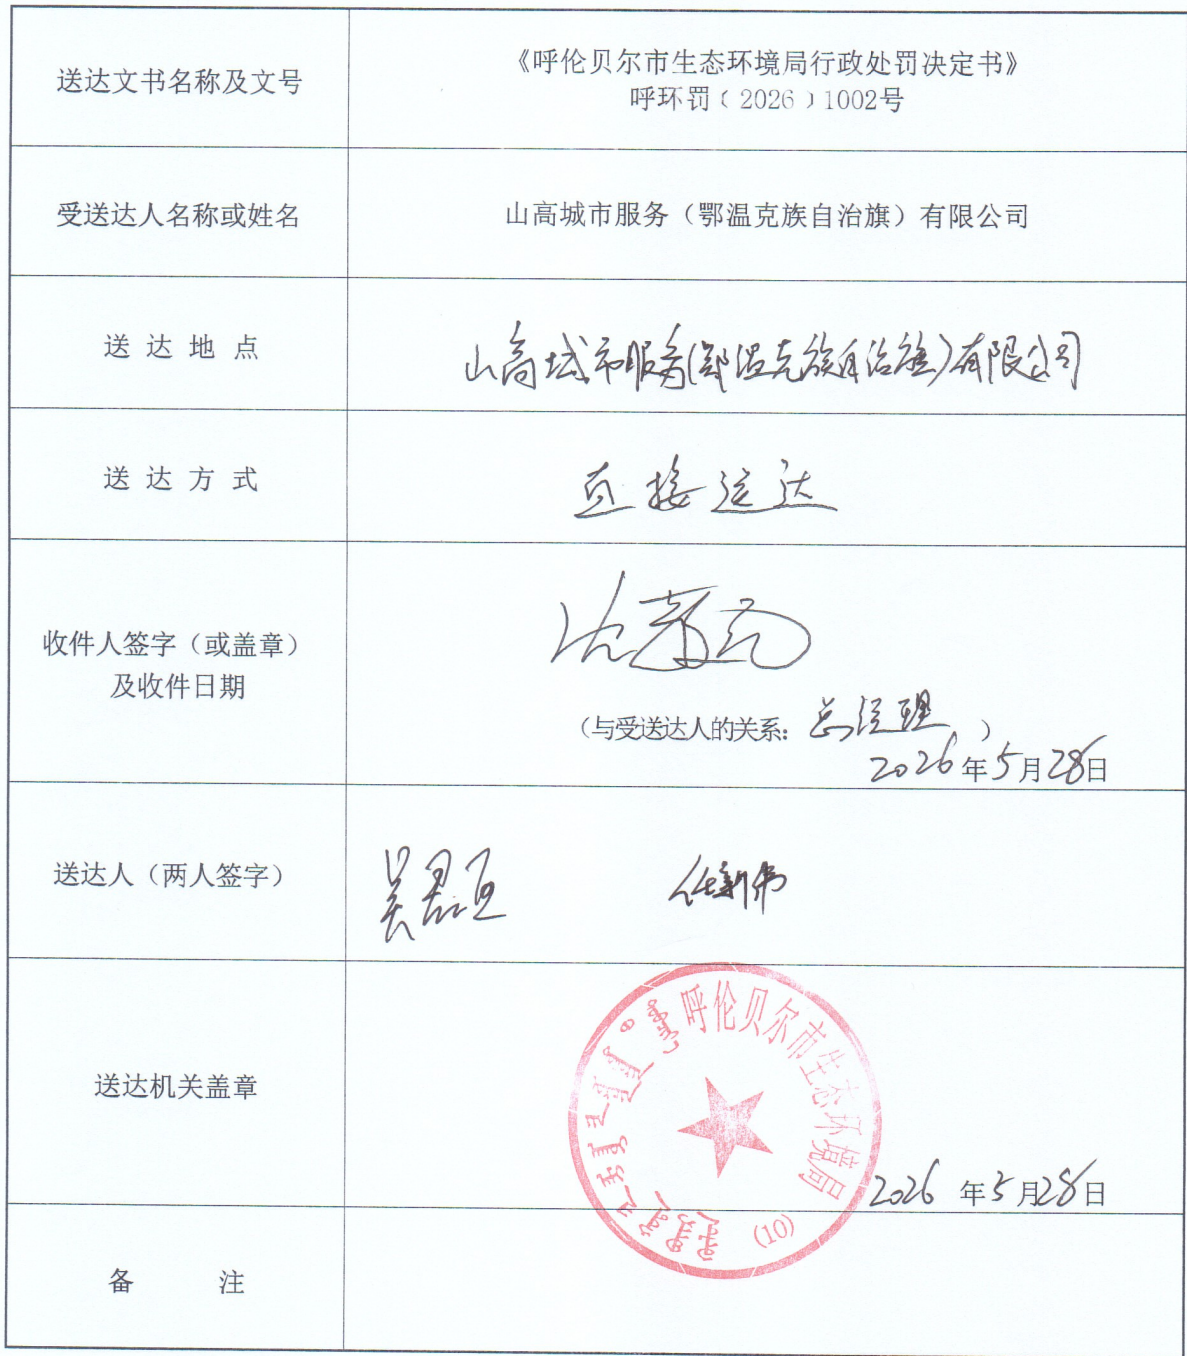 送达文书名称及文号
《呼伦贝尔市生态环境局行政处罚决定书》
呼环罚﹝2026﹞1002号
受送达人名称或姓名
山高城市服务（鄂温克族自治旗）有限公司
送 达 地 点
山高城市服务(鄂温克族自治旗)有限公司
送 达 方 式
直接送达
收件人签字（或盖章）
及收件日期
（与受送达人的关系：总经理）
2026年5月28日
送达人（两人签字）
任新伟
送达机关盖章
呼伦贝尔市生态环境局
(10)
2026 年5月28日
备 注